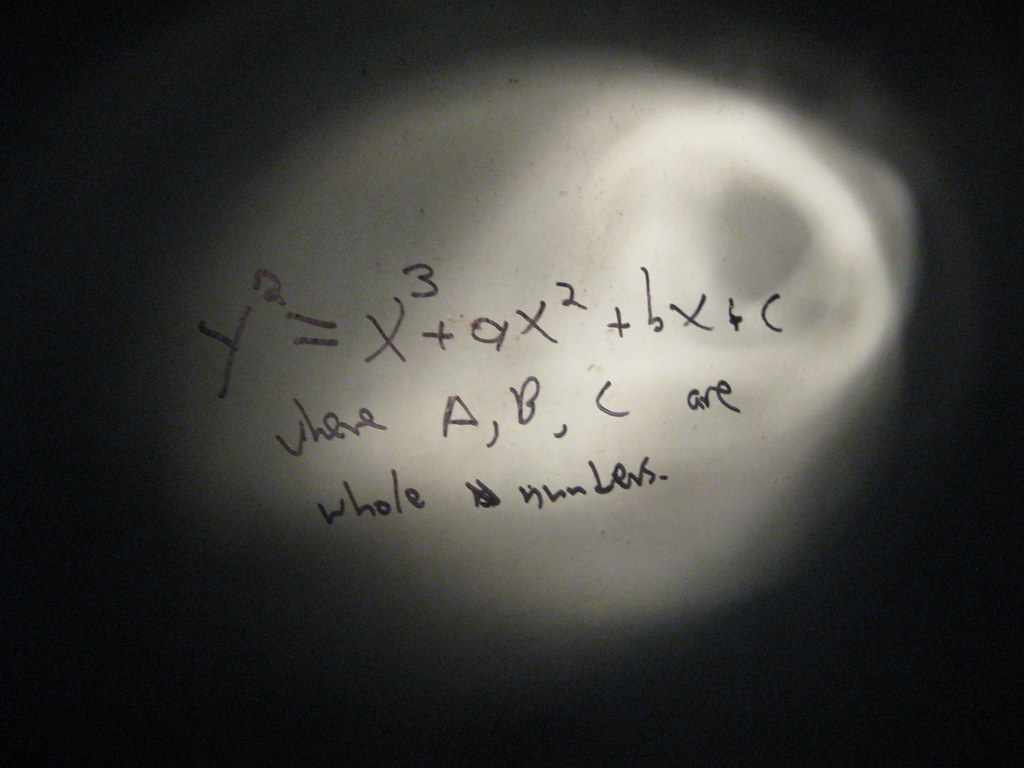 y² = x³ + ax² + bx + c
where A, B, C are
whole numbers.